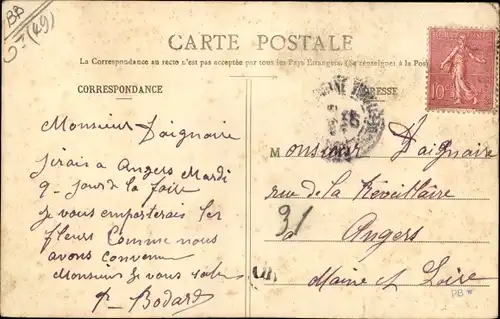 BB
(49)
CARTE POSTALE
La Correspondance au recto n'est pas acceptée par tous les Pays Étrangers. (Se renseigner à la Poste)
CORRESPONDANCE
ADRESSE
10
Monsieur Daignaire
jirais a Angers Mardi
9- jour de la foire
je vous emporterais les
fleurs Comme nous
avons convenue
Monsieur je vous
P- Bodard
Monsieur Daignaire
rue de la Réveillaire
31
a Angers
Maine et Loire
PB